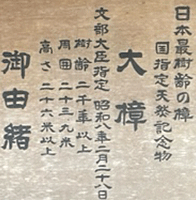 日本最樹齢の樟
国指定天然記念物
大樟
文部大臣指定 昭和八年二月二十八日
樹齢 二千年以上
周囲 二十三九米
高さ 二十六米以上
御由緒